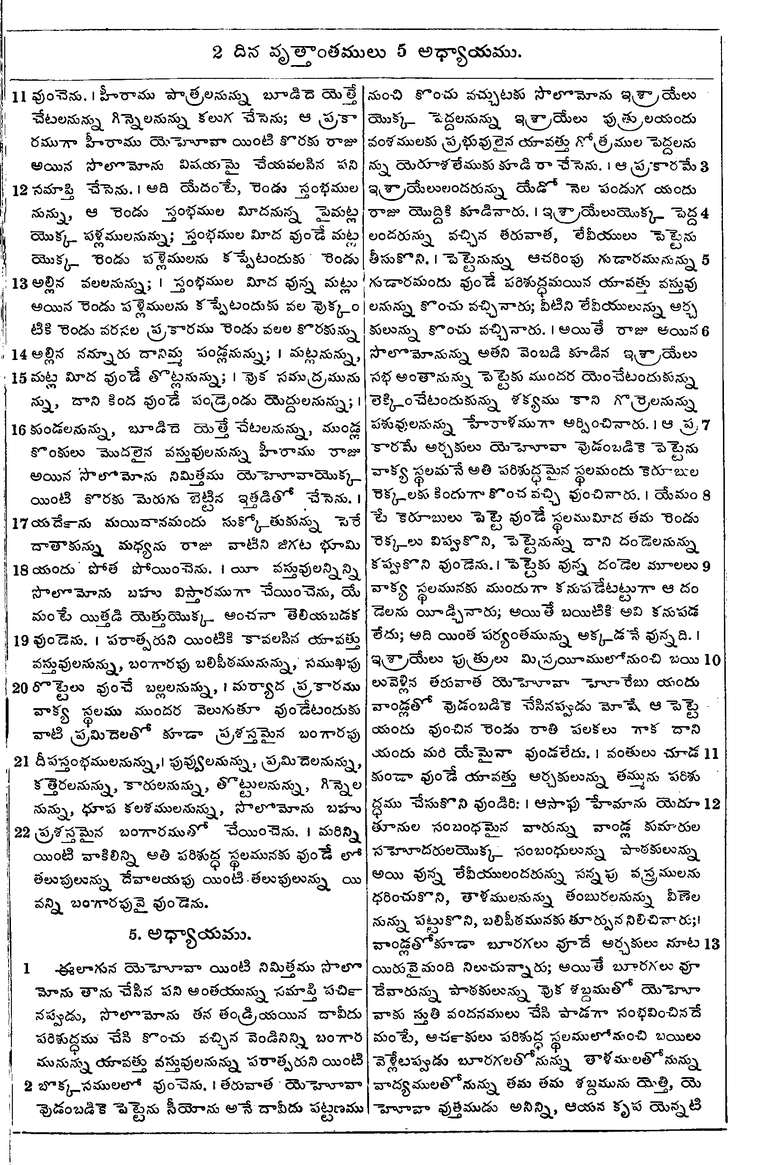 2 దిన వృత్తాంతములు 5 అధ్యాయము.
11 వుంచెను. । హీరాము పాత్రలనున్ను బూడిదె యెత్తే
చేటలనున్ను గిన్నెలనున్ను కలుగ చేసెను; ఆ ప్రకా
రముగా హీరాము యెహోవా యింటి కొరకు రాజు
అయిన సొలొమోను విషయమై చేయవలసిన పని
12 సమాప్తి చేసెను. । అది యేదంటే, రెండు స్తంభముల
నున్ను, ఆ రెండు స్తంభముల మీదనున్న పైమట్ల
యొక్క పళ్లెములనున్ను; స్తంభముల మీద వుండే మట్ల
యొక్క రెండు పళ్లెములను కప్పేటందుకు రెండు
13 అల్లిన వలలనున్ను; । స్తంభముల మీద వున్న మట్లు
అయిన రెండు పళ్లెములను కప్పేటందుకు వల వొక్కం
టికి రెండు వరసల ప్రకారము రెండు వలల కొరకున్ను
14 అల్లిన నన్నూరు దానిమ్మ పండ్లనున్ను; । మట్లనున్ను,
15 మట్ల మీద వుండే తొట్లనున్ను; । వొక సముద్రమును
న్ను, దాని కింద వుండే పండ్రెండు యెద్దులనున్ను; ।
16 కుండలనున్ను, బూడిదె యెత్తే చేటలనున్ను, ముండ్ల
కొంకులు మొదలైన వస్తువులనున్ను హీరాము రాజు
అయిన సొలొమోను నిమిత్తము యెహోవాయొక్క
యింటి కొరకు మెరుగు బెట్టిన ఇత్తడితో చేసెను. ।
17 యర్దేను మయిదానమందు సుక్కోతుకున్ను సెరే
దాతాకున్ను మధ్యను రాజు వాటిని జిగట భూమి
18 యందు పోత పోయించెను. । యీ వస్తువులన్నిన్ని
సొలొమోను బహు విస్తారముగా చేయించెను, యే
మంటే యిత్తడి యెత్తుయొక్క అంచనా తెలియబడక
19 వుండెను. । పరాత్పరుని యింటికి కావలసిన యావత్తు
వస్తువులనున్ను, బంగారపు బలిపీఠమునున్ను, సముఖపు
20 రొట్టెలు వుంచే బల్లలనున్ను, । మర్యాద ప్రకారము
వాక్య స్థలము ముందర వెలుగుతూ వుండేటందుకు
వాటి ప్రమిదెలతో కూడా ప్రశస్తమైన బంగారపు
21 దీపస్తంభములనున్ను, । పువ్వులనున్ను, ప్రమిదెలనున్ను,
కత్తెరలనున్ను, కారులనున్ను, తొట్టులనున్ను, గిన్నెల
నున్ను, ధూప కలశములనున్ను, సొలొమోను బహు
22 ప్రశస్తమైన బంగారముతో చేయించెను. । మరిన్ని
యింటి వాకిలిన్ని అతి పరిశుద్ధ స్థలమునకు వుండే లో
తలుపులున్ను దేవాలయపు యింటి తలుపులున్ను యి
వన్ని బంగారపువై వుండెను.
5. అధ్యాయము.
1 ఈలాగున యెహోవా యింటి నిమిత్తము సొలొ
మోను తాను చేసిన పని అంతయున్ను సమాప్తి పర్చి
నప్పుడు, సొలొమోను తన తండ్రియయిన దావీదు
పరిశుద్ధము చేసి కొంచు వచ్చిన వెండినిన్ని బంగార
మునున్ను యావత్తు వస్తువులనున్ను పరాత్పరుని యింటి
2 బొక్కసములలో వుంచెను. । తరువాత యెహోవా
వొడంబడికె పెట్టెను సీయోను అనే దావీదు పట్టణము
నుంచి కొంచు వచ్చుటకు సొలొమోను ఇశ్రాయేలు
యొక్క పెద్దలనున్ను ఇశ్రాయేలు పుత్రులయందు
వంశములకు ప్రభువులైన యావత్తు గోత్రముల పెద్దలను
న్ను యెరూశలేముకు కూడి రా చేసెను. । ఆ ప్రకారమే 3
ఇశ్రాయేలులందరున్ను యేడో నెల పండుగ యందు
రాజు యొద్దికి కూడినారు. । ఇశ్రాయేలుయొక్క పెద్ద 4
లందరున్ను వచ్చిన తరువాత, లేవీయులు పెట్టెను
తీసుకొని. । పెట్టెనున్ను ఆచరింపు గుడారమునున్ను 5
గుడారమందు వుండే పరిశుద్ధమయిన యావత్తు వస్తువు
లనున్ను కొంచు వచ్చినారు; వీటిని లేవీయులున్ను అర్చ
కులున్ను కొంచు వచ్చినారు. । అయితే రాజు అయిన 6
సొలొమోనున్ను అతని వెంబడి కూడిన ఇశ్రాయేలు
సభ అంతానున్ను పెట్టెకు ముందర యెంచేటందుకున్ను
లెక్కించేటందుకున్ను శక్యము కాని గొర్రెలనున్ను
పశువులనున్ను హేరాళముగా అర్పించినారు. । ఆ ప్ర 7
కారమే అర్చకులు యెహోవా వొడంబడికె పెట్టెను
వాక్య స్థలమనే అతి పరిశుద్ధమైన స్థలమందు కెరూబుల
రెక్కలకు కిందుగా కొంచ వచ్చి వుంచినారు. । యేమం 8
టే కెరూబులు పెట్టె వుండే స్థలముమీద తమ రెండు
రెక్కలు విప్పుకొని, పెట్టెనున్ను దాని దండెలనున్ను
కప్పుకొని వుండెను. । పెట్టెకు వున్న దండెల మూలలు 9
వాక్య స్థలమునకు ముందుగా కనుపడేటట్టుగా ఆ దం
డెలను యీడ్చినారు; అయితే బయిటికి అవి కనుపడ
లేదు; అది యింత పర్యంతమున్ను అక్కడనే వున్నది. ।
ఇశ్రాయేలు పుత్రులు మిస్రయీములోనుంచి బయి 10
లువెళ్లిన తరువాత యెహోవా హోరేబు యందు
వాండ్లతో వొడంబడికె చేసినప్పుడు మోషే ఆ పెట్టె
యందు వుంచిన రెండు రాతి పలకలు గాక దాని
యందు మరి యేమైనా వుండలేదు. । వంతులు చూడ 11
కుండా వుండే యావత్తు అర్చకులున్ను తమ్మును పరిశు
ద్ధము చేసుకొని వుండిరి: । ఆసాఫు హేమాను యెదూ 12
తూనుల సంబంధమైన వారున్ను వాండ్ల కుమారుల
సహోదరులయొక్క సంబంధులున్ను పాఠకులున్ను
అయి వున్న లేవీయులందరున్ను సన్నపు వస్త్రములను
ధరించుకొని, తాళములనున్ను తంబురలనున్ను వీణెల
నున్ను పట్టుకొని, బలిపీఠమునకు తూర్పున నిలిచినారు; ।
వాండ్లతోకూడా బూరగలు వూదే అర్చకులు నూట 13
యిరువైమంది నిలుచున్నారు; అయితే బూరగలు వూ
దేవారున్ను పాఠకులున్ను వొక శబ్దముతో యెహో
వాకు స్తుతి వందనములు చేసి పాడగా సంభవించినదే
మంటే, అర్చకులు పరిశుద్ధ స్థలములోనుంచి బయిలు
వెళ్లేటప్పుడు బూరగలతోనున్ను తాళములతోనున్ను
వాద్యములతోనున్ను తమ తమ శబ్దమును యెత్తి, యె
హోవా వుత్తముడు అనిన్ని, ఆయన కృప యెన్నటి